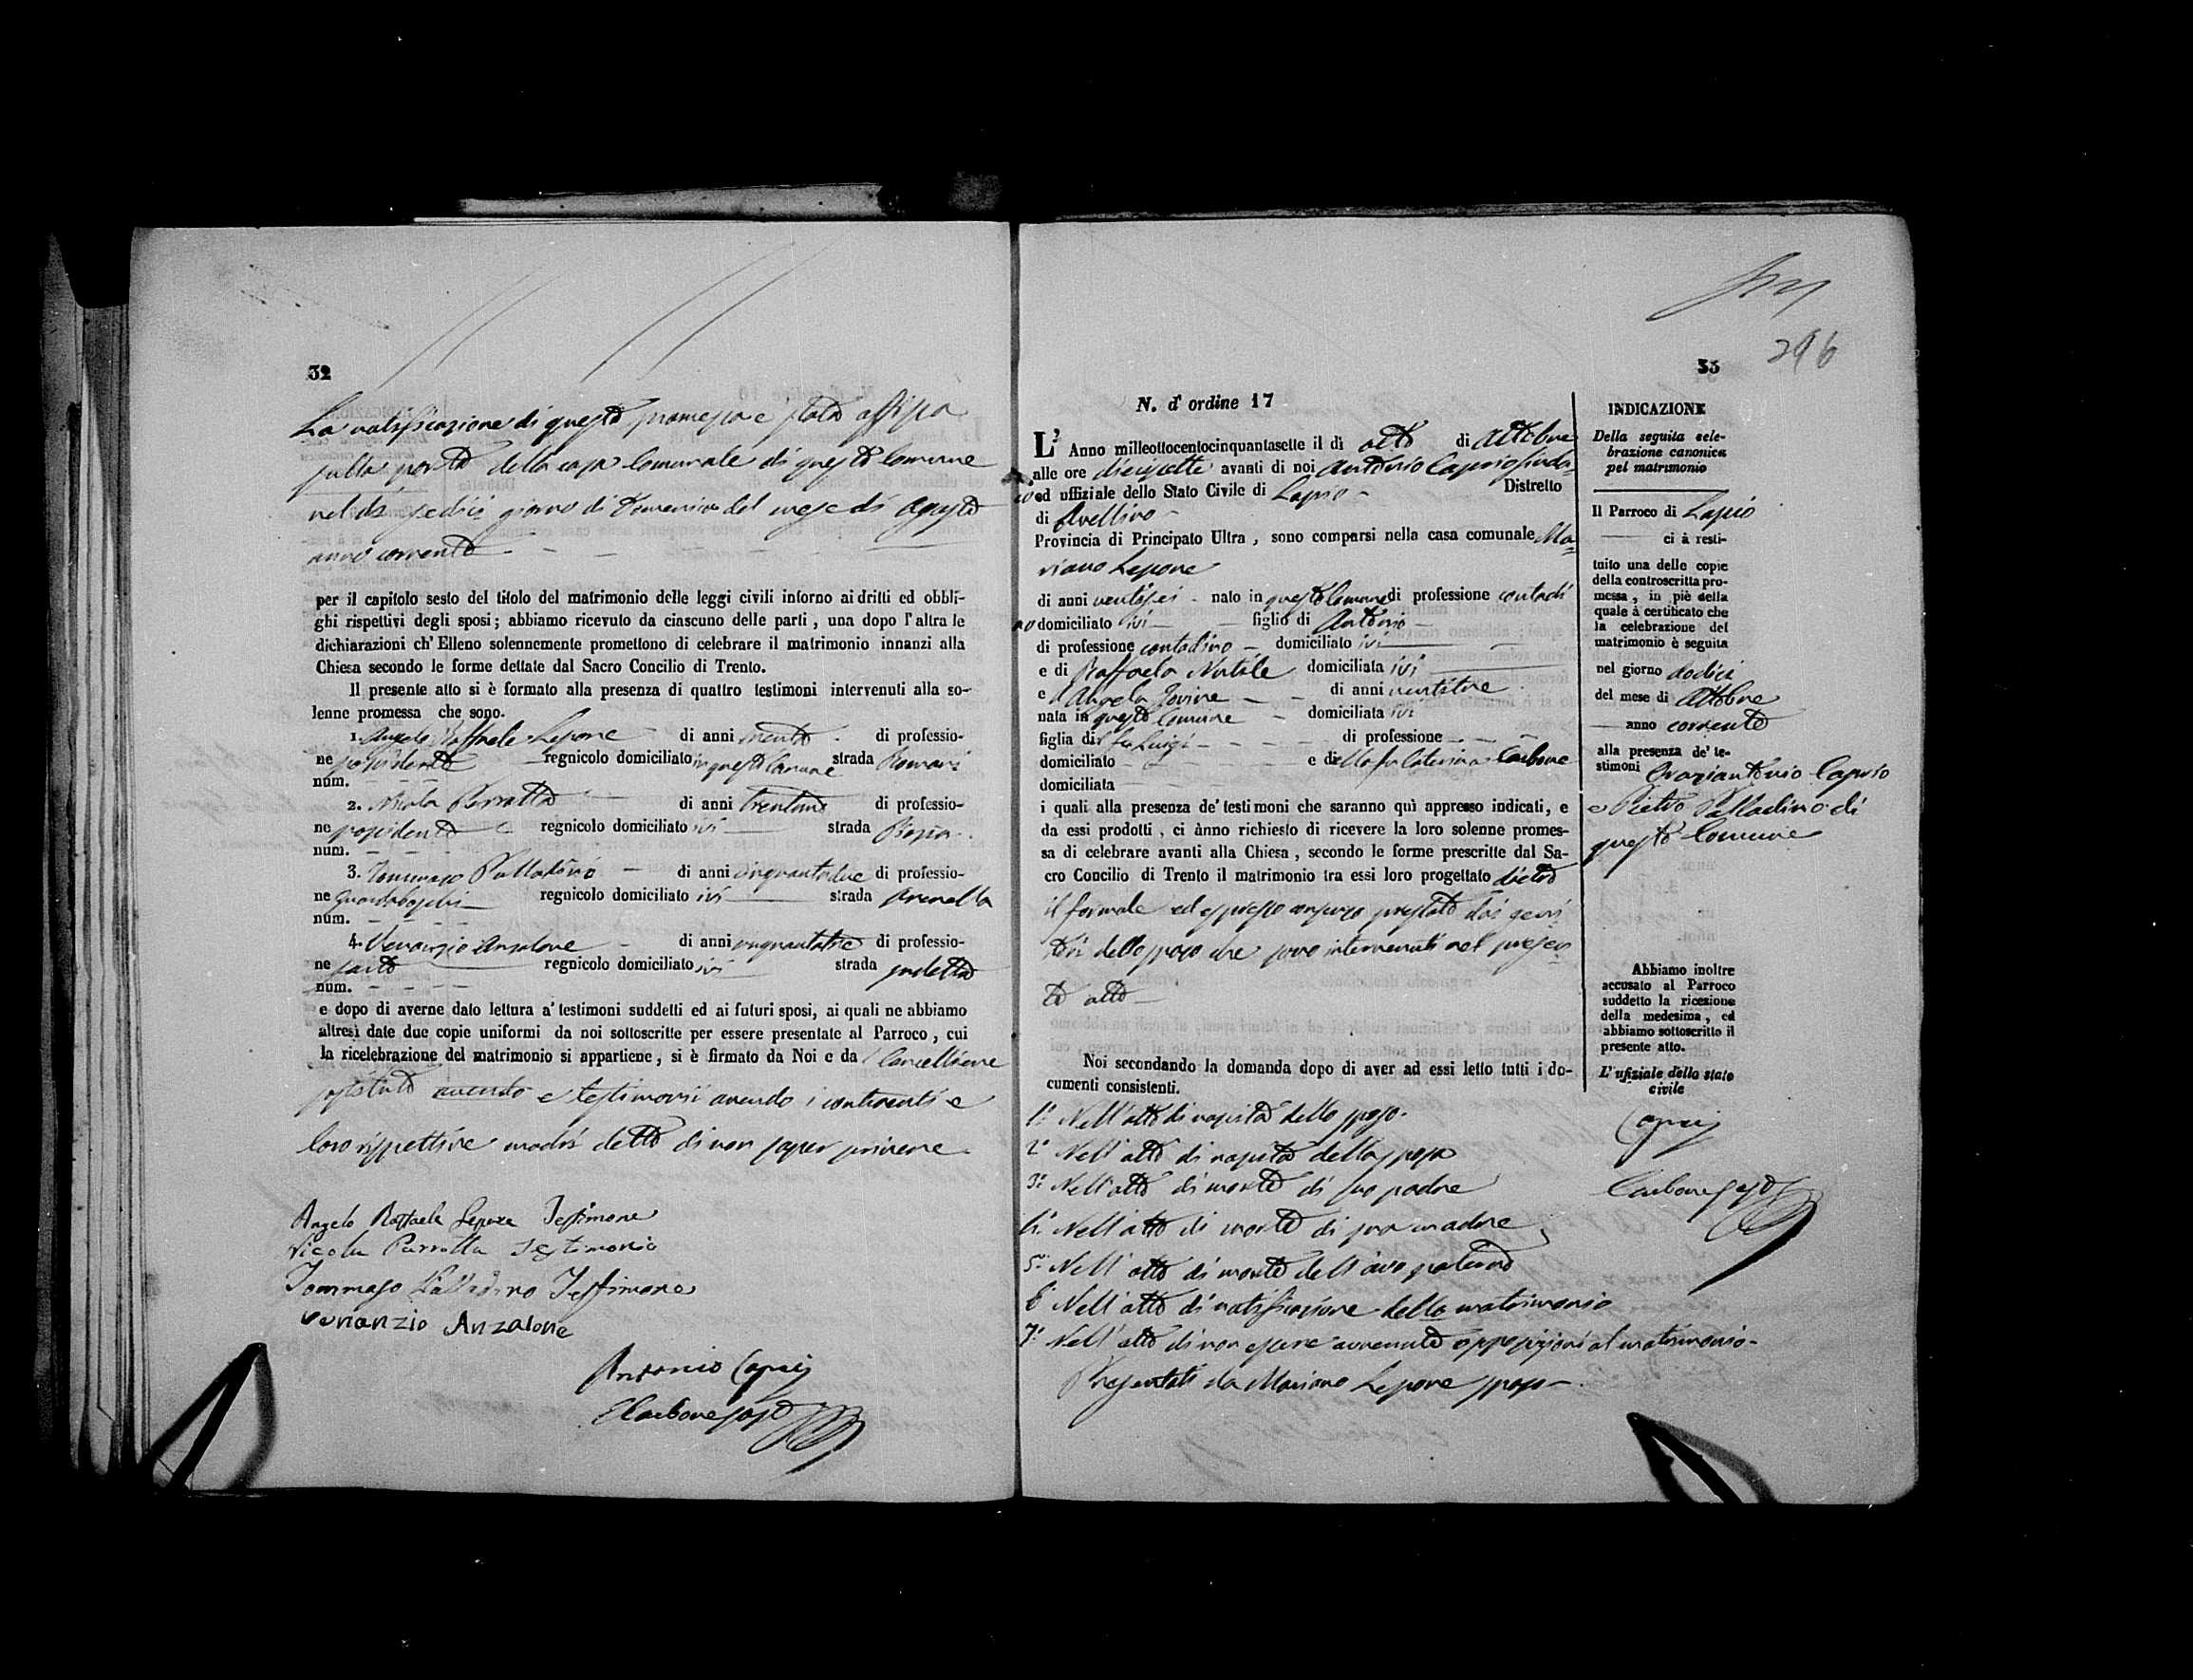 32
La notificazione di questa promessa è stata affissa
sulla porta della casa Comunale di questo Comune
nel dì sedici giorno di Domenica del mese di Agosto
anno corrente
per il capitolo sesto del titolo del matrimonio delle leggi civili intorno ai dritti ed obbli-
ghi rispettivi degli sposi; abbiamo ricevuto da ciascuno delle parti, una dopo l'altra le
dichiarazioni ch' Elleno solennemente promettono di celebrare il matrimonio innanzi alla
Chiesa secondo le forme dettate dal Sacro Concilio di Trento.
Il presente atto si è formato alla presenza di quattro testimoni intervenuti alla so-
lenne promessa che sono.
1. Angelo Raffaele Lepore di anni trenta di professio-
ne possidente regnicolo domiciliato in questo Comune strada Romani
num.
2. Nicola Parrotta di anni di professio-
ne possidente regnicolo domiciliato ivi strada
num.
3. Tommaso Palladino di anni cinquantadue di professio-
ne Guardaboschi regnicolo domiciliato ivi strada Arenella
num.
4. Venanzio Anzalone di anni cinquantatre di professio-
ne sarto regnicolo domiciliato ivi strada
num.
e dopo di averne dato lettura a' testimoni suddetti ed ai futuri sposi, ai quali ne abbiamo
altresì date due copie uniformi da noi sottoscritte per essere presentate al Parroco, cui
la ricelebrazione del matrimonio si appartiene, si è firmato da Noi e da Cancelliere
sostituto avendo e testimonii avendo i contraenti e
loro rispettive madri detto di non saper scrivere
Angelo Raffaele Lepore Testimone
Nicola Parrotta Testimonio
Tommaso Palladino Testimone
Venanzio Anzalone
Antonio Caprio
Carbone sost
33
296
N. d' ordine 17
L' Anno milleottocentocinquantasette il dì otto di Ottobre
alle ore diecisette avanti di noi Antonio Caprio Sinda-
co ed uffiziale dello Stato Civile di Lapio Distretto
di Avellino
Provincia di Principato Ultra, sono comparsi nella casa comunale Ma-
riano Lepore
di anni ventisei nato in questo Comune di professione contadi
no domiciliato ivi figlio di Antonio
di professione contadino domiciliato ivi
e di Raffaela Natale domiciliata ivi
e Angela Iovine di anni ventitre
nata in questo Comune domiciliata ivi
figlia di fu Luigi di professione
domiciliato e della fu Caterina Carbone
domiciliata
i quali alla presenza de' testimoni che saranno quì appresso indicati, e
da essi prodotti, ci ànno richiesto di ricevere la loro solenne promes-
sa di celebrare avanti alla Chiesa, secondo le forme prescritte dal Sa-
cro Concilio di Trento il matrimonio tra essi loro progettato dietro
il formale ed espresso consenso prestato dai geni
tori dello sposo che sono intervenuti nel presen
te atto
Noi secondando la domanda dopo di aver ad essi letto tutti i do-
cumenti consistenti.
1.° Nell'atto di nascita dello sposo.
2.° Nell'atto di nascita della sposa
3.° Nell'atto di morte di suo padre
4.° Nell'atto di morte di sua madre
5.° Nell'atto di morte dell'avo paterno
6.° Nell'atto di notificazione dello matrimonio
7.° Nell'atto di non essere avvenuto opposizioni al matrimonio.
Presentati da Mariano Lepore sposo
INDICAZIONE
Della seguita cele-
brazione canonica
pel matrimonio
Il Parroco di Lapio
ci à resti-
tuito una delle copie
della controscritta pro-
messa, in piè della
quale à certificato che
la celebrazione del
matrimonio è seguita
nel giorno dodici
del mese di Ottobre
anno corrente
alla presenza de' te-
stimoni Oraziantonio Caprio
e Pietro Palladino di
questo Comune
Abbiamo inoltre
accusato al Parroco
suddetto la ricezione
della medesima, ed
abbiamo sottoscritto il
presente atto.
L'ufiziale dello stato
civile
Caprio
Carbone sost